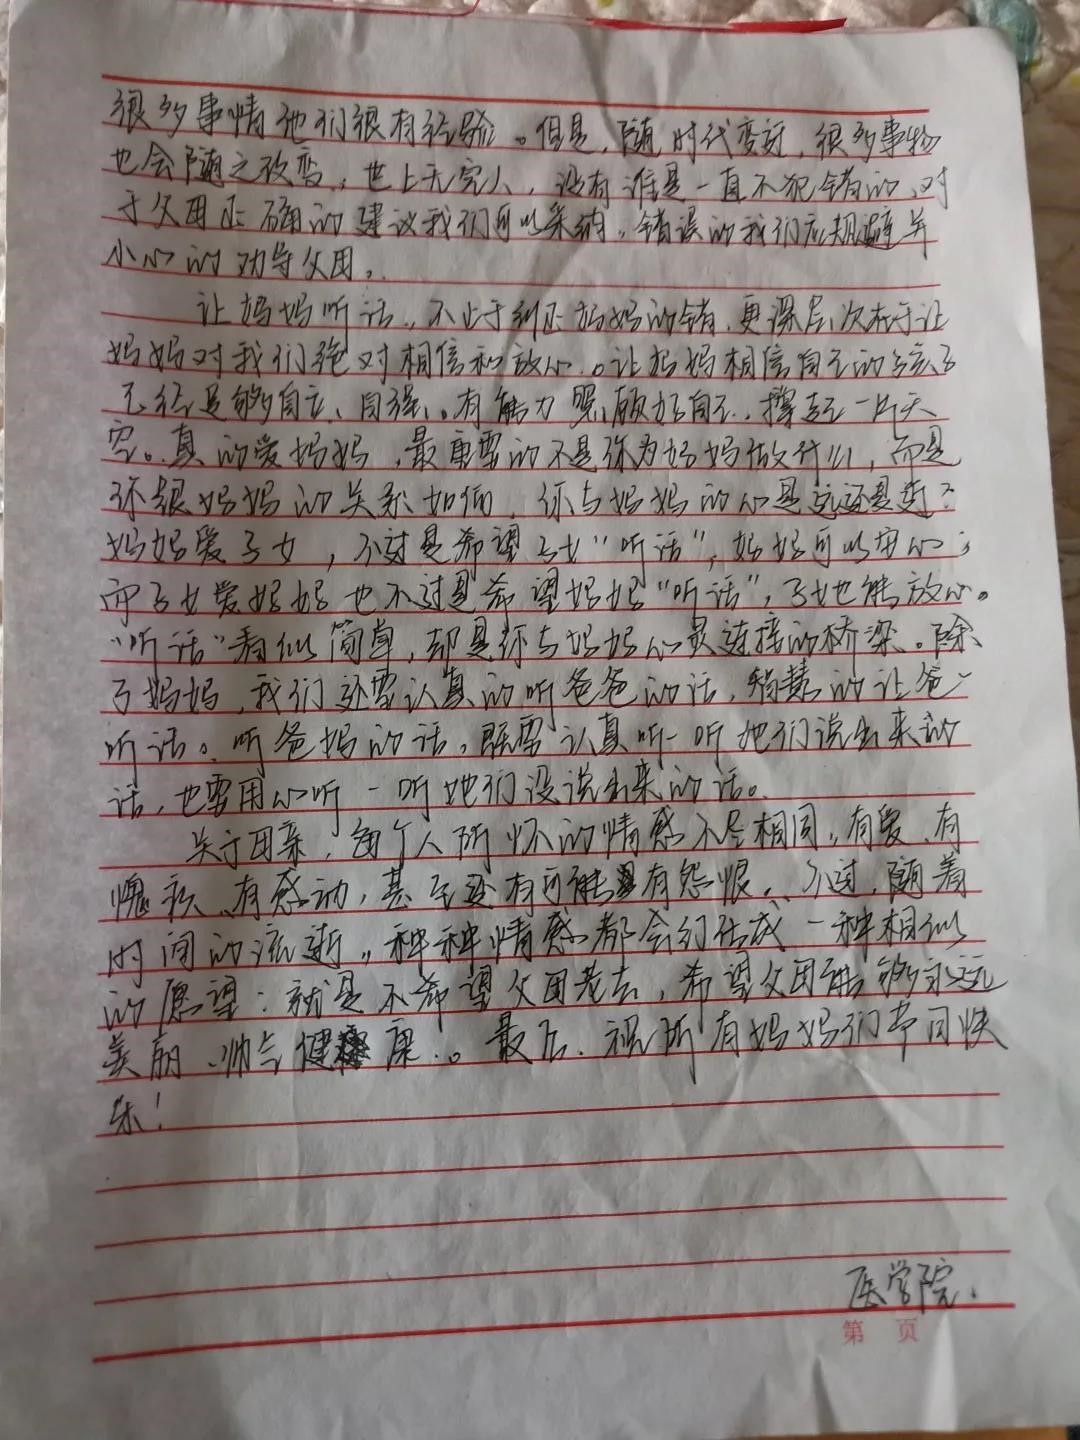 很多事情他们很有经验。但是，随时代变迁，很多事物
也会随之改变，世上无完人，没有谁是一直不犯错的，对
于父母正确的建议我们可以采纳，错误的我们应规避并
小心的劝导父母。
让妈妈听话，不止于纠正妈妈的错，更深层次在于让
妈妈对我们绝对相信和放心。让妈妈相信自己的孩子
已经足够自立、自强、有能力照顾好自己，撑起一片天
空。真的爱妈妈，最重要的不是你为妈妈做什么，而是
你跟妈妈的关系如何，你与妈妈的心是远还是近？
妈妈爱子女，不过是希望子女“听话”，妈妈可以安心；
而子女爱妈妈也不过是希望妈妈“听话”，子女也能放心。
“听话”看似简单，却是你与妈妈心灵连接的桥梁。除
了妈妈，我们还需认真的听爸爸的话，智慧的让爸爸
听话。听爸妈的话，既需认真听一听他们说出来的
话，也需用心听一听她们没说出来的话。
关于母亲，每个人所怀的情感不尽相同，有爱、有
愧疚、有感动，甚至还有可能有怨恨。不过，随着
时间的流逝，种种情感都会归结成一种相似
的愿望：就是不希望父母老去，希望父母能够永远
美丽、帅气健康。最后，祝所有妈妈们节日快
乐！
医学院.
第 页